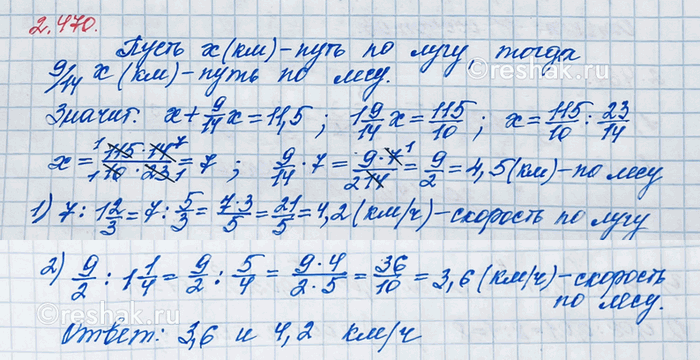 2.470.
Пусть x (км) - путь по лугу, тогда
9/14 x (км) - путь по лесу.
Значит: x + 9/14 x = 11,5 ; 1 9/14 x = 115/10 ; x = 115/10 : 23/14
x = 115·14/10·23 = 7 ; 9/14 · 7 = 9·7/14 = 9/2 = 4,5 (км) - по лесу
1) 7 : 1 2/3 = 7 : 5/3 = 7·3/5 = 21/5 = 4,2 (км/ч) - скорость по лугу
2) 9/2 : 1 1/4 = 9/2 : 5/4 = 9·4/2·5 = 36/10 = 3,6 (км/ч) - скорость
по лесу.
Ответ: 3,6 и 4,2 км/ч